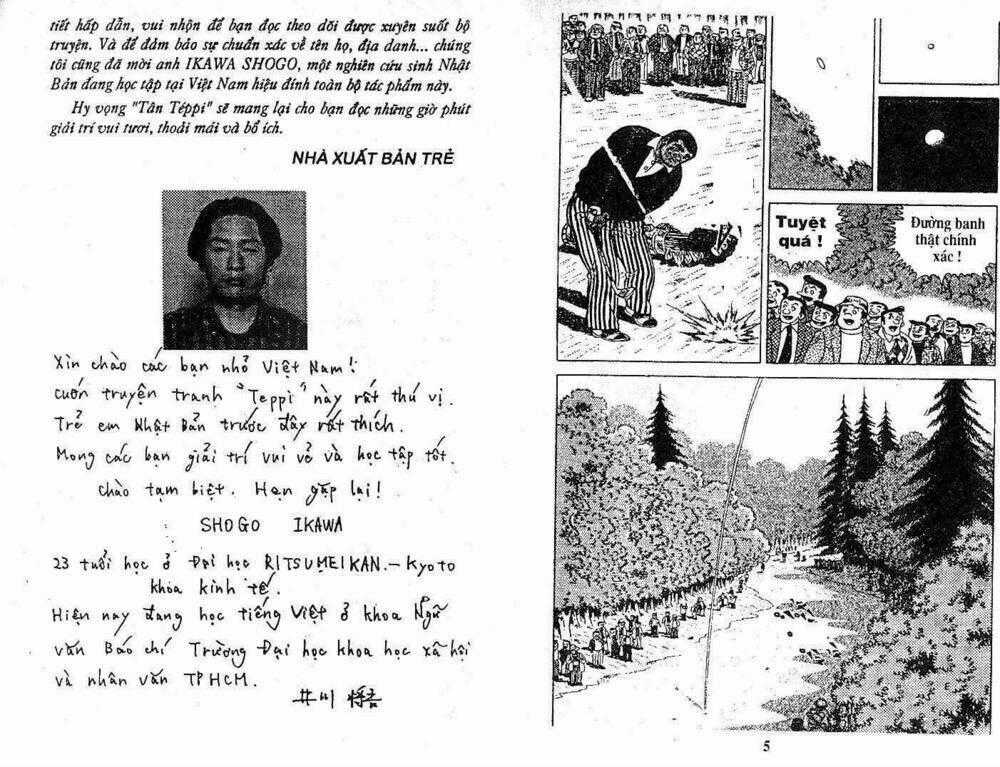 tiết hấp dẫn, vui nhộn để bạn đọc theo dõi được xuyên suốt bộ
truyện. Và để đảm bảo sự chuẩn xác về tên họ, địa danh... chúng
tôi cũng đã mời anh IKAWA SHOGO, một nghiên cứu sinh Nhật
Bản đang học tập tại Việt Nam hiệu đính toàn bộ tác phẩm này.
Hy vọng "Tân Téppi" sẽ mang lại cho bạn đọc những giờ phút
giải trí vui tươi, thoải mái và bổ ích.
NHÀ XUẤT BẢN TRẺ
Xin chào các bạn nhỏ Việt Nam!
Cuốn truyện tranh "Teppi" này rất thú vị.
Trẻ em Nhật Bản trước đây rất thích.
Mong các bạn giải trí vui vẻ và học tập tốt.
chào tạm biệt. Hẹn gặp lại!
SHOGO IKAWA
23 tuổi học ở Đại học RITSUMEIKAN.-Kyoto
khoa kinh tế.
Hiện nay đang học tiếng Việt ở khoa Ngữ
văn Báo chí Trường Đại học khoa học xã hội
và nhân văn TPHCM.
井川
Tuyệt
quá !
Đường banh
thật chính
xác !
5